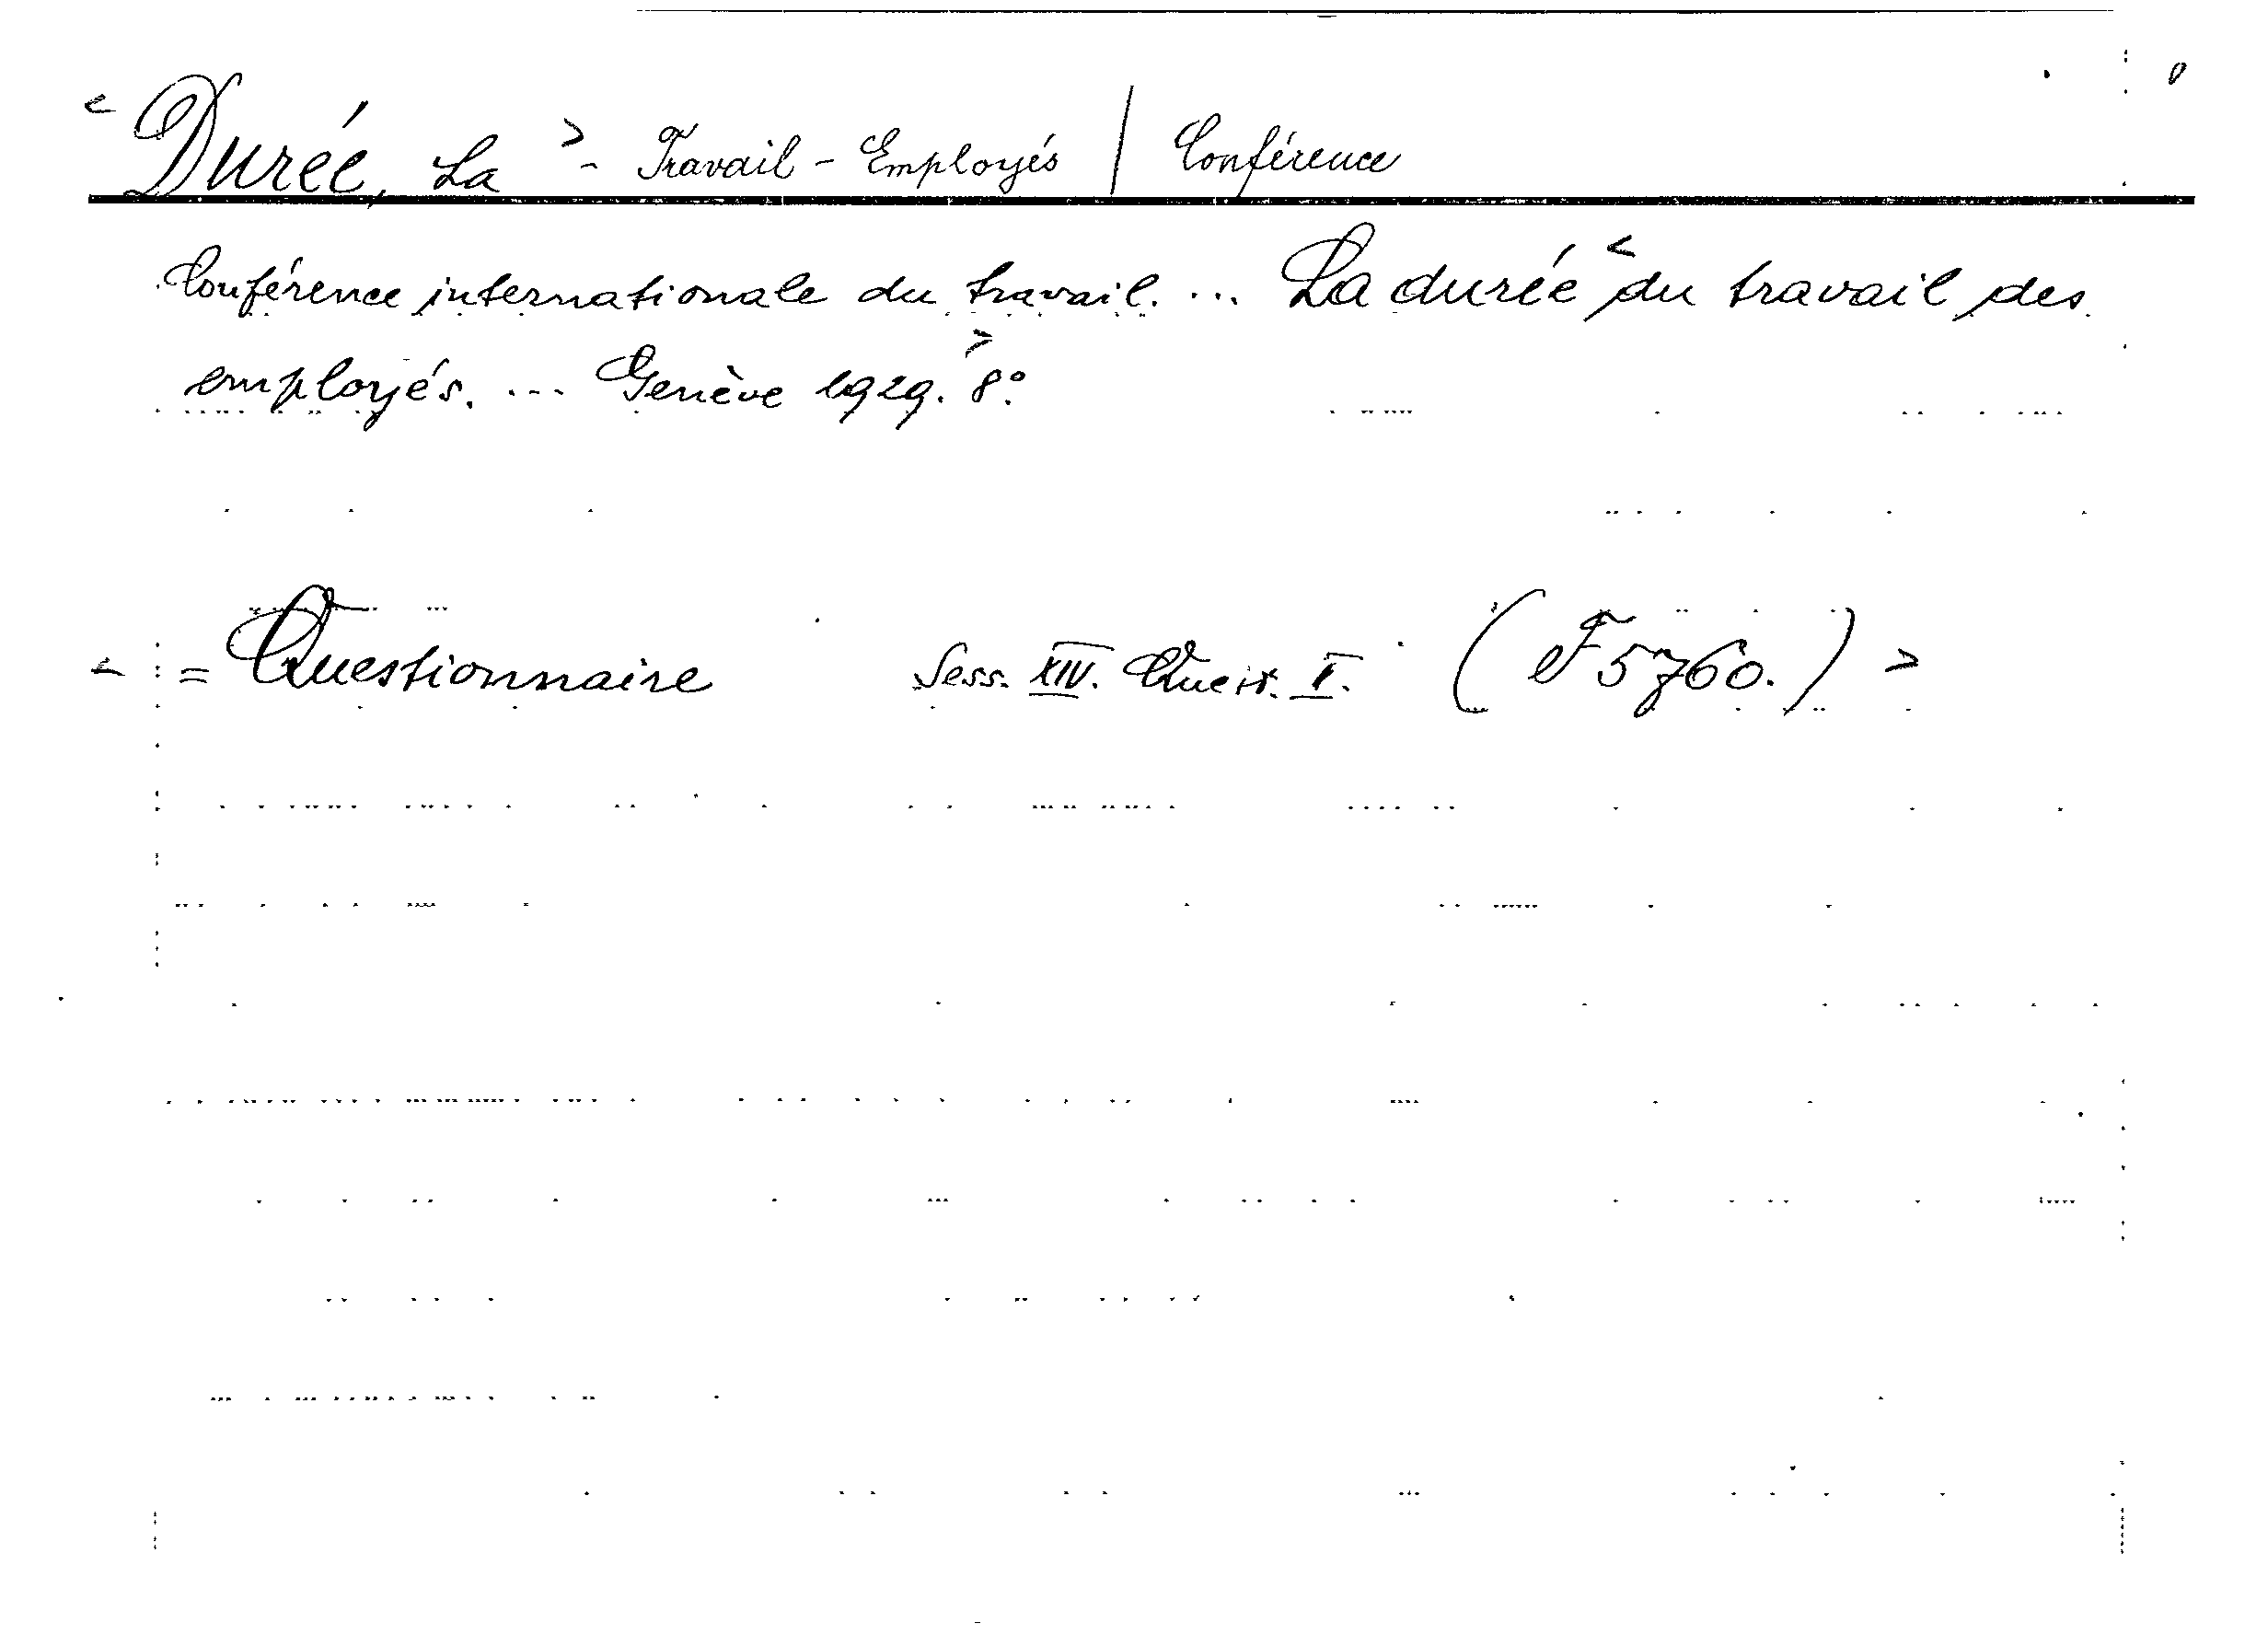 < Durée, La > - Travail - Employés / Conférence
Conférence internationale du travail. ... La durée < du travail des
employés. ... Genève 1929. > 8°.
< = Questionnaire Sess. XIV. Quest. II. (F 5760.) >